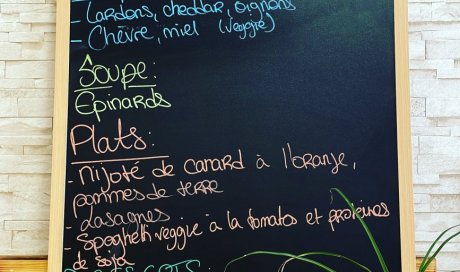 - Lardons, cheddar, oignons
- Chèvre, miel (veggie)
Soupe:
Epinards
Plats:
- Mijoté de canard à l'orange,
pommes de terre
- Lasagnes
- Spaghetti veggie à la tomates et protéines
de soja